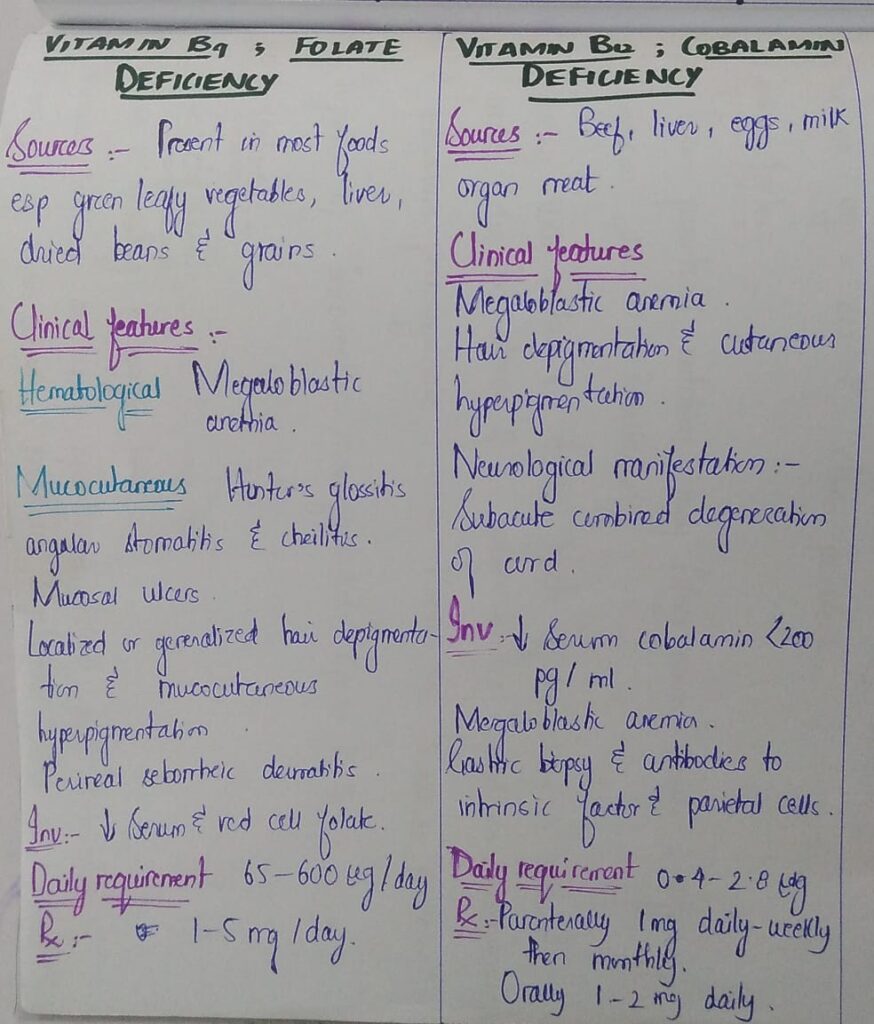 VITAMIN B9 ; FOLATE
DEFICIENCY
Sources :- Present in most foods
esp green leafy vegetables, liver,
dried beans & grains.
Clinical features :-
Hematological Megaloblastic
anemia.
Mucocutaneous Hunter's glossitis
angular stomatitis & cheilitis.
Mucosal ulcers.
Localized or generalized hair depigmenta-
tion & mucocutaneous
hyperpigmentation.
Perineal seborrheic dermatitis.
Inv:- ↓ Serum & red cell folate.
Daily requirement 65-600 µg/day
Rx:- 1-5 mg/day.
VITAMIN B12 ; COBALAMIN
DEFICIENCY
Sources :- Beef, liver, eggs, milk
organ meat.
Clinical features
Megaloblastic anemia.
Hair depigmentation & cutaneous
hyperpigmentation.
Neurological manifestation :-
Subacute combined degeneration
of cord.
Inv :- ↓ Serum cobalamin <200
pg/ml.
Megaloblastic anemia.
Gastric biopsy & antibodies to
intrinsic factor & parietal cells.
Daily requirement 0.4-2.8 µg
Rx:- Parenterally 1mg daily-weekly
then monthly.
Orally 1-2 mg daily.